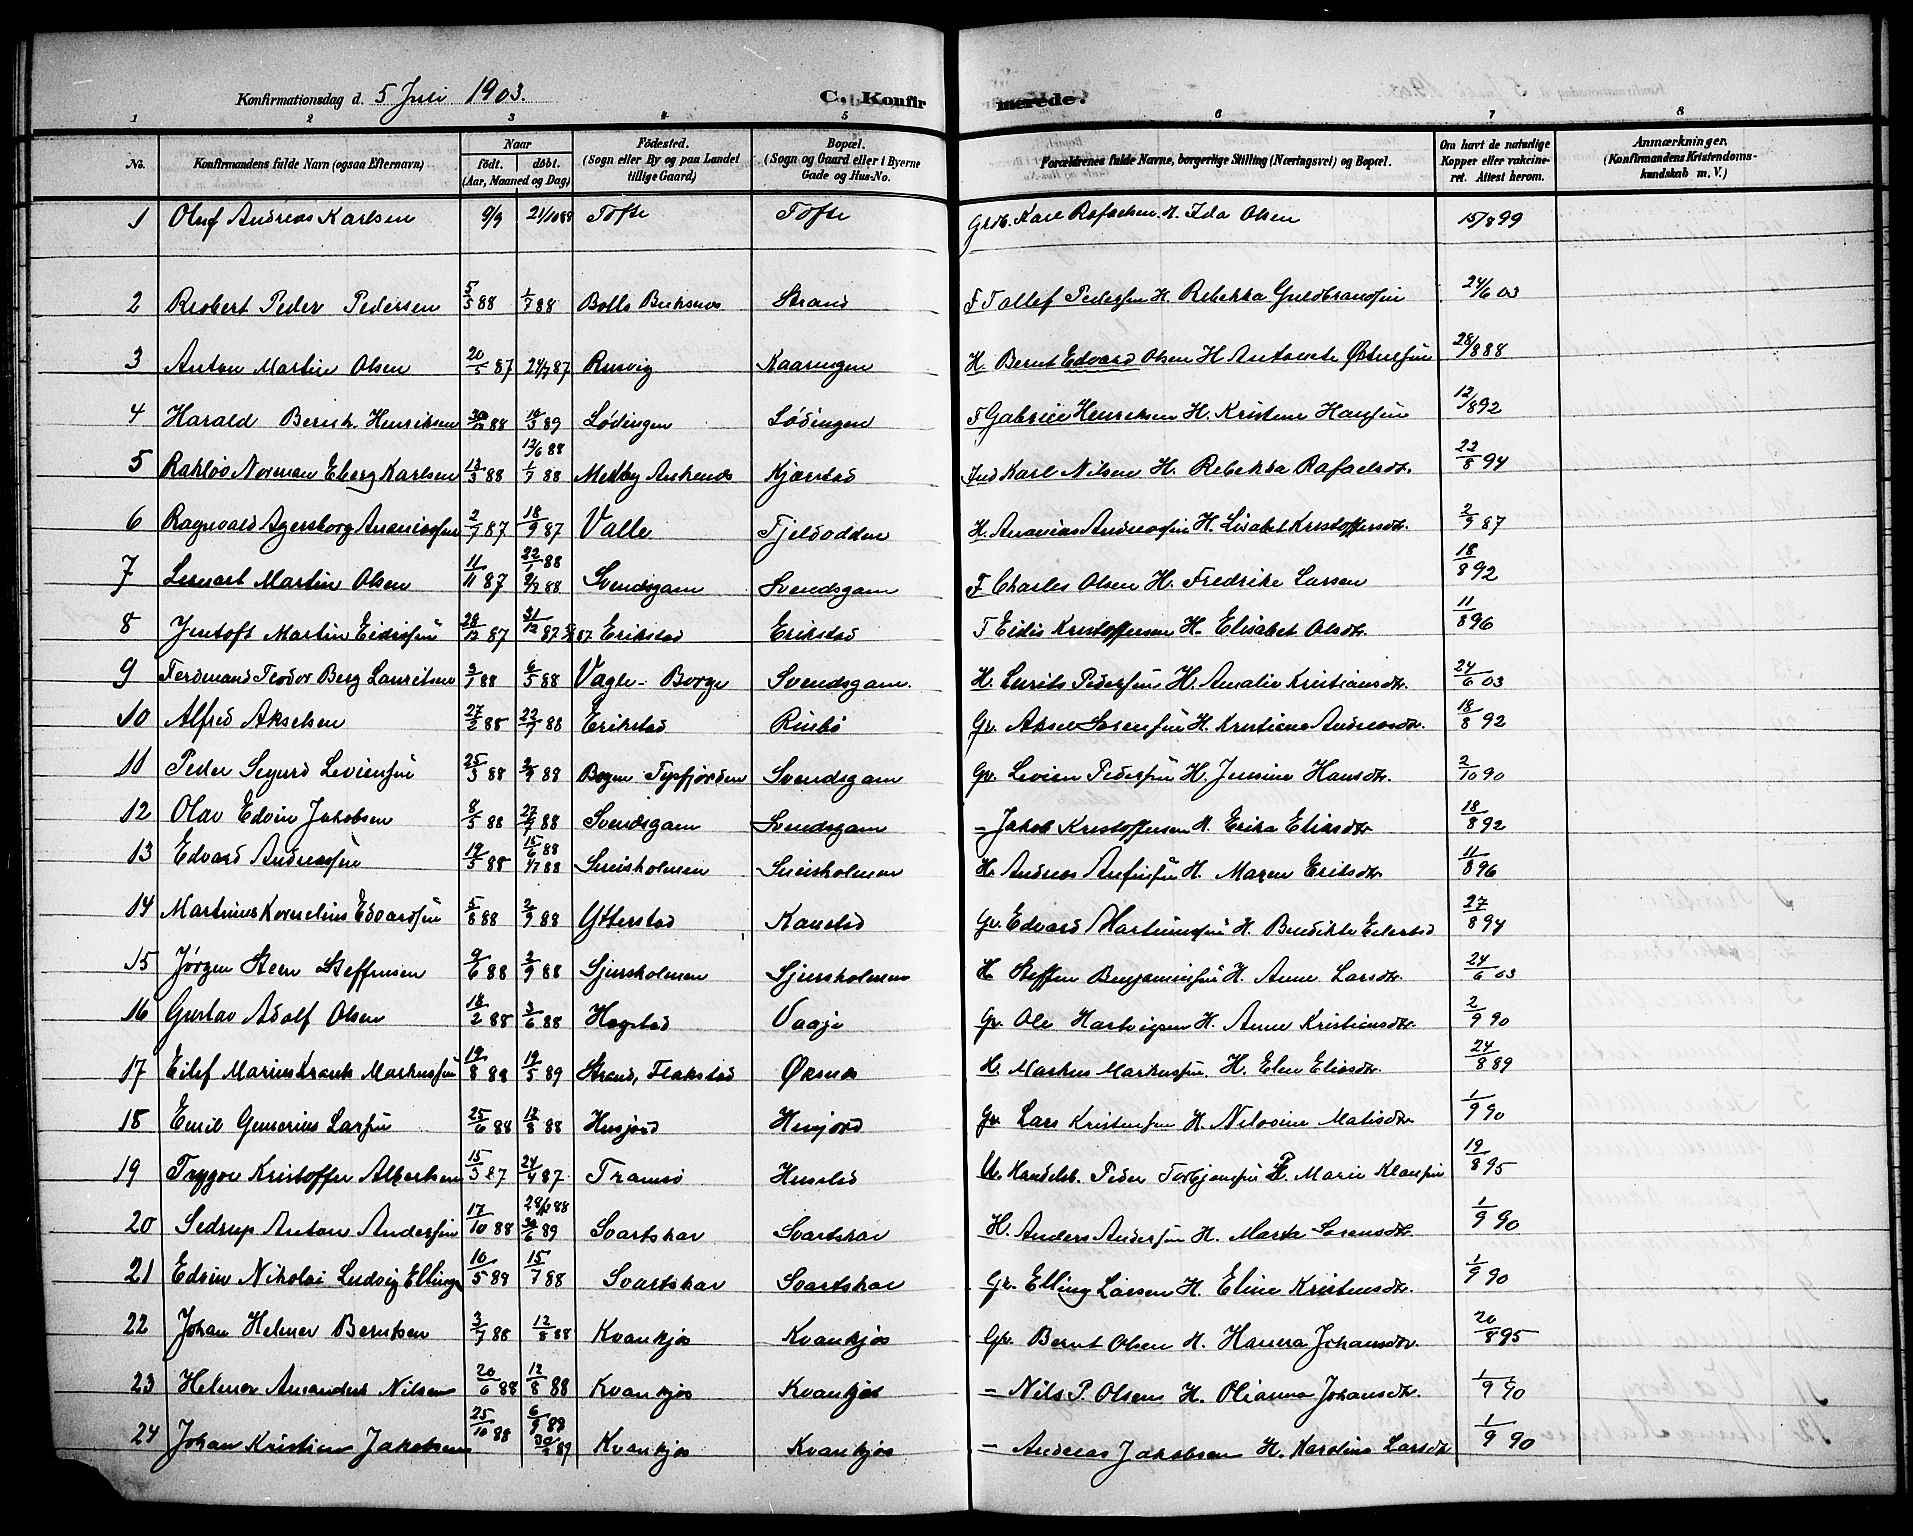 Konfirmationsdag d. 5 Juli 1903. C. Konfirmerede.
1 2 3 4 5 6 7 8
No. Konfirmandens fulde Navn (ogsaa Efternavn) Naar födt. döbt. (Aar, Maaned og Dag) Födested. (Sogn eller By og paa Landet tillige Gaard) Bopæl. (Sogn og Gaard eller i Byerne Gade og Hus-No. Forældrenes fulde Navne, borgerlige Stilling (Næringsvei) og Bopæl. Om havt de naturlige Kopper eller vakcineret. Attest herom. Anmærkninger. (Konfirmandens Kristendomskundskab m. V.)
1 Oluf Andreas Karlsen 9/9 21/10 89 Tofte Tofte Grdb. Karl Rafaelsen H. Ida Olsen 15/8 99
2 Reobert Peder Pedersen 5/5 88 1/7 88 Bolle Buksnes Strand F Tollef Pedersen H. Rebekka Guldbrandsen 24/6 03
3 Anton Martin Olsen 20/5 87 24/7 87 Rusvig Kaaringen H. Bernt Edvard Olsen H Antonete Østensen 28/8 88
4 Harald Bernh. Henriksen 30/12 88 10/3 89 Lødingen Lødingen F Gabriel Henriksen H. Kristine Hansen 12/8 92
5 Norman Eberg Karlsen 13/3 88 12/6 88 1/7 88 Kjærstad Ind Karl Nilsen H. Rebekka Rafaelsdtr. 22/8 94
6 Ragnvald Agersborg Ananiassen 2/7 87 18/9 87 Valle Fjeldodden H. Ananias Andreassen H. Lisabet Kristoffersdtr. 2/9 87
7 Lennart Martin Olsen 11/11 87 22/1 88 88 Svendsgam Svendsgam F Charles Olsen H. Fredrike Larsen 18/8 92
8 Jentoft Martin Eidissen 28/12 87 31/12 87 Erikstad Erikstad F Eidis Kristoffersen H. Elisabet Olsdtr. 11/8 96
9 Ferdinand Teodor Berg Lauritsen 3/1 88 6/5 88 Vagle - Borge Svendsgam. H. Lurits Pedersen H. Amalie Kristiansdtr. 24/6 03
10 Alfred Akselsen 27/2 88 22/7 88 Erikstad Rinbø Gr. Aksel Sørensen H. Kristiane Andreasdtr. 18/8 92
11 Peder Sigurd Leviensen 25/3 88 2/9 88 Bogen Tysfjorden Svendsgam Gr. Levien Pedersen H. Jensine Hansdtr. 2/10 90
12 Olav Edvin Jakobsen 8/5 88 27/7 88 Svendsgam Svendsgam - Jakob Kristoffersen H. Erika Eliasdtr 18/8 92
13 Edvard Andreassen 19/5 88 15/6 88 1/7 88 Sneisholmen Sneisholmen H. Andreas Anfinsen H. Maren Eriksdtr. 11/8 96
14 Martinus Kornelius Edvardsen 5/8 88 2/9 88 Ytterstad Kanstad Gr. Edvard Martinussen H. Benedikte 27/8 94
15 Jørgen Steen Steffensen 9/6 88 2/9 88 Sjursholmen Sjursholmen H Steffen Benjaminsen H. Anne Larsdtr. 24/6 03
16 Gustav Adolf Olsen 18/2 88 3/6 88 Hogstad Vaaje Gr. Ole Hartvigsen H. Anne Kristiansdtr. 2/9 90
17 Eilef Marius Krank Markussen 19/8 88 19/5 89 Strand, Flakstad Øksnes H. Markus Markussen. H. Elen Eliasdtr. 24/8 89
18 Emil Gunerius Larsen 25/6 88 12/8 88 Husjord Husjord Gr Lars Kristensen H. Nilosine Matisdtr 1/9 90
19 Trygve Kristoffer Albertsen 15/3 87 24/4 87 Tramsø U. Handelsb. Peder Torbjensen P. Marie Klausen 19/8 95
20 Sedrup Anton Andersen 17/10 88 88 30/6 89 Svartskar Svartskar H. Anders Andersen H. Marta Sørensdtr. 1/9 90
21 Edvin Nikolai Ludvig Ellings 10/5 89 15/7 88 Svartskar Svartskar Gr. Elling Larsen H. Eline Kristensdtr. 1/9 90
22 Johan Helmer Berntsen 3/7 88 12/8 88 Kvankjos Kvankjos Gr. Bernt Olsen H. Hanna Johansdtr. 20/8 95
23 Helmer Amandus Nilsen 20/6 88 12/8 88 Kvankjos Kvankjos - Nils P. Olsen H. Olianna Johansdtr. 1/9 90
24 Johan Kristian Jakobsen 25/10 88 6/9 88 89 Kvankjos Kvankjos - Andreas Jakobsen H. Karolina Larsdtr 1/9 90